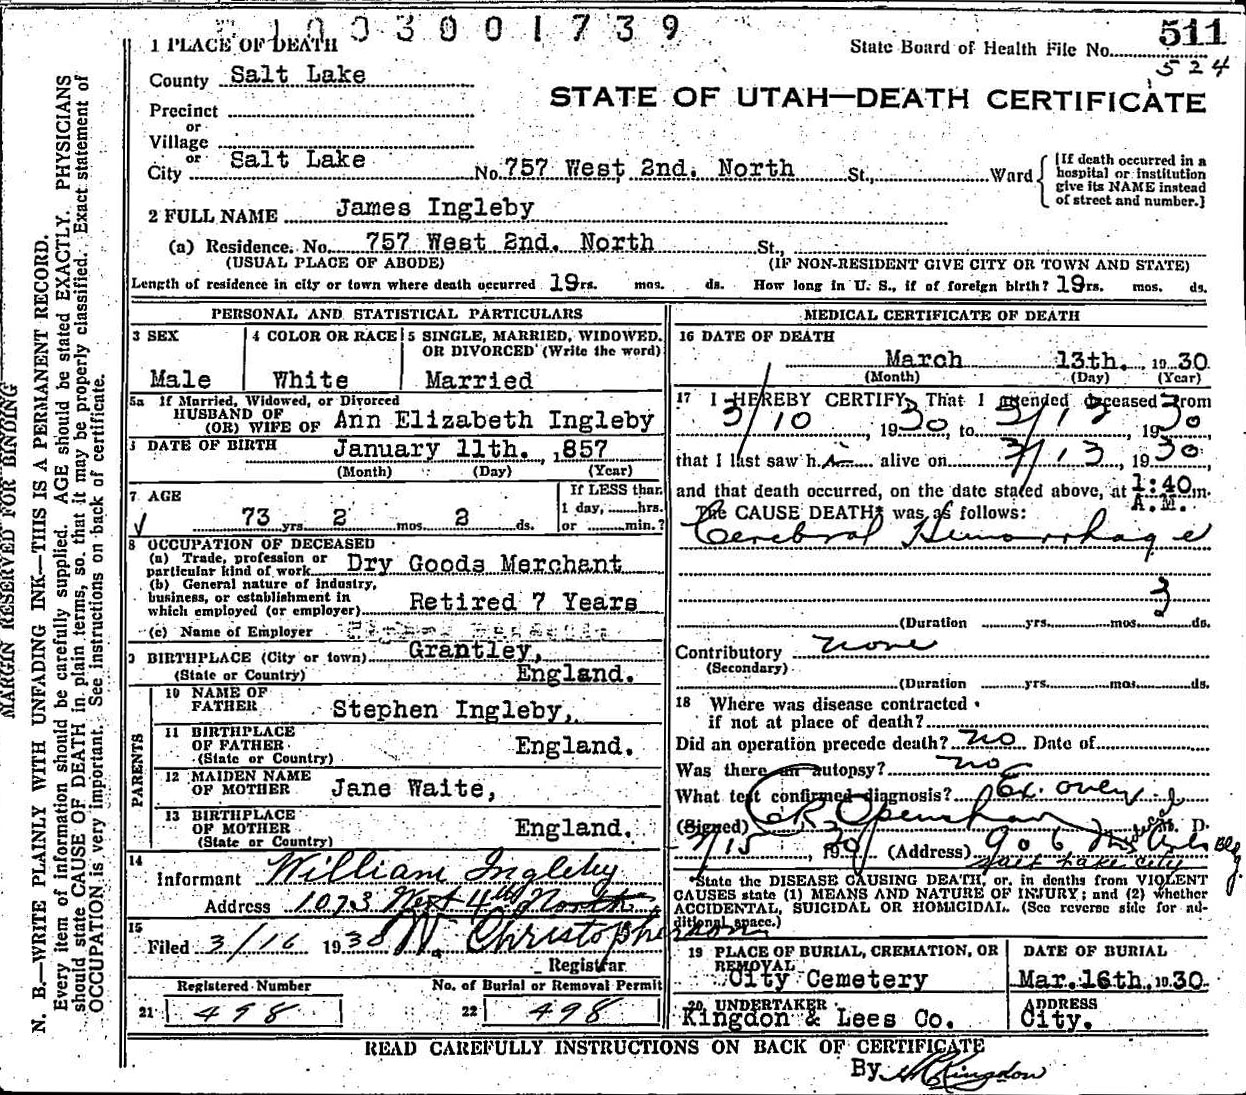 1003001739
1 PLACE OF DEATH
State Board of Health File No. 511
524
County Salt Lake
STATE OF UTAH—DEATH CERTIFICATE
Precinct
or
Village
or
City Salt Lake No. 757 West 2nd. North St., Ward
[If death occurred in a
hospital or institution
give its NAME instead
of street and number.]
2 FULL NAME James Ingleby
(a) Residence. No. 757 West 2nd. North St.,
(USUAL PLACE OF ABODE) (IF NON-RESIDENT GIVE CITY OR TOWN AND STATE)
Length of residence in city or town where death occurred 19rs. mos. ds. How long in U. S., if of foreign birth? 19rs. mos. ds.
PERSONAL AND STATISTICAL PARTICULARS
3 SEX
Male
4 COLOR OR RACE
White
5 SINGLE, MARRIED, WIDOWED.
OR DIVORCED (Write the word)
Married
5a If Married, Widowed, or Divorced
HUSBAND OF
(OR) WIFE OF Ann Elizabeth Ingleby
DATE OF BIRTH January 11th. ,1857
(Month) (Day) (Year)
7 AGE
73 yrs. 2 mos. 2 ds.
If LESS than
1 day, hrs.
or min.?
8 OCCUPATION OF DECEASED
(a) Trade, profession or
particular kind of work Dry Goods Merchant
(b) General nature of industry,
business, or establishment in
which employed (or employer) Retired 7 Years
(c) Name of Employer
9 BIRTHPLACE (City or town) Grantley,
(State or Country) England.
PARENTS
10 NAME OF
FATHER Stephen Ingleby,
11 BIRTHPLACE
OF FATHER England.
(State or Country)
12 MAIDEN NAME
OF MOTHER Jane Waite,
13 BIRTHPLACE
OF MOTHER England.
(State or Country)
14
Informant William Ingleby
Address 1073 West 4th North
15
Filed 3/16 1930 W. Christopherson
Registrar
Registered Number
21 498
No. of Burial or Removal Permit
22 498
MEDICAL CERTIFICATE OF DEATH
16 DATE OF DEATH
March 13th. , 1930
(Month) (Day) (Year)
17 I HEREBY CERTIFY, That I attended deceased from
3/10, 1930, to 3/13, 1930
that I last saw h alive on 3/13, 1930,
and that death occurred, on the date stated above, at 1:40 m.
A.M.
The CAUSE DEATH* was as follows:
Cerebral Hemorrhage
3
(Duration yrs. mos. ds.
Contributory none
(Secondary)
(Duration yrs. mos. ds.
18 Where was disease contracted
if not at place of death?
Did an operation precede death? no Date of
Was there an autopsy? no
What test confirmed diagnosis?
(Signed) C R Openshaw M. D.
3/15, 1930 (Address) 906 Medical Arts Bldg
Salt Lake City
*State the DISEASE CAUSING DEATH, or, in deaths from VIOLENT
CAUSES state (1) MEANS AND NATURE OF INJURY; and (2) whether
ACCIDENTAL, SUICIDAL OR HOMICIDAL. (See reverse side for ad-
ditional space.)
19 PLACE OF BURIAL, CREMATION, OR
REMOVAL
City Cemetery
DATE OF BURIAL
Mar. 16th, 1930.
20 UNDERTAKER
Kingdon & Lees Co.
ADDRESS
City.
READ CAREFULLY INSTRUCTIONS ON BACK OF CERTIFICATE
By Kingdon
MARGIN RESERVED FOR BINDING
N. B.—WRITE PLAINLY WITH UNFADING INK—THIS IS A PERMANENT RECORD.
Every item of information should be carefully supplied. AGE should be stated EXACTLY. PHYSICIANS
should state CAUSE OF DEATH in plain terms, so that it may be properly classified. Exact statement of
OCCUPATION is very important. See instructions on back of certificate.